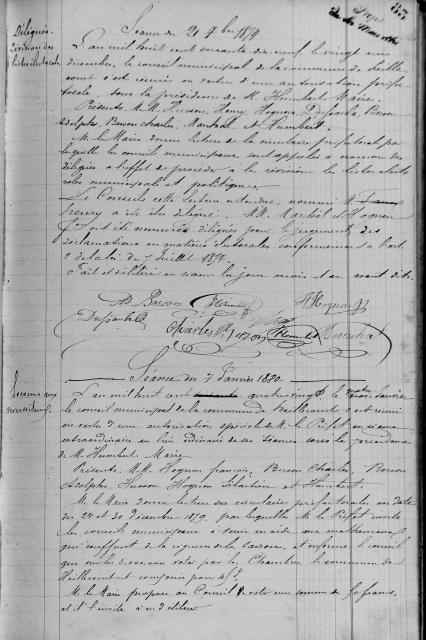 Délégués
révision des
listes électorales
Séance du 21 Xbre 1879
L'an mil huit cent soixante dix neuf, le vingt un
décembre, le conseil municipal de la commune de
s'est réuni en vertu d'une autorisation préfec-
torale, sous la présidence de M. Humbert Maire.
Présents, M.M. Husson, Henry, Hognon, Berson
Adolphe, Berson Charles, Martial, et Humbert.
M. le Maire donne lecture de la circulaire préfectorale par
laquelle les conseils municipaux sont appelés à nommer des
délégués à l'effet de procéder à la révision des listes électo-
rales municipales et politiques.
Le Conseil, cette lecture entendue, nomme M.
henry a été élu délégué. MM. Martial et Hognon
ont été nommés délégués pour le jugement des
réclamations en matières électorales conformément à l'art.
2 de la loi du 7 Juillet 1874.
Fait et délibéré en séance le jour mois et an avant dits.
Ad Berson
Hognon
Charles
Séance du 7 Janvier 1880
Secours aux
nécessiteux
L'an mil huit cent quatre vingt le
le conseil municipal de la commune de s'est réuni
en vertu d'une autorisation spéciale de M. le Préfet en séance
extraordinaire au lieu ordinaire de ses séances sous la présidence
de M. Humbert Maire.
Présents, M.M. Hognon françois, Berson Charles, Berson
Adolphe, Husson, Hognon Sébastien et Humbert.
M. le Maire donne lecture des circulaires préfectorales en date
des 24 et 30 décembre 1879, par lesquelles M. le Préfet invite
les conseils municipaux à venir en aide aux malheureux
qui souffrent de la rigueur de la saison, et informe le conseil
que sur les voté par les Chambres la commune de
est comprise pour
M. le Maire propose au Conseil de voter une somme de 50 francs
et l'invite à en délibérer.